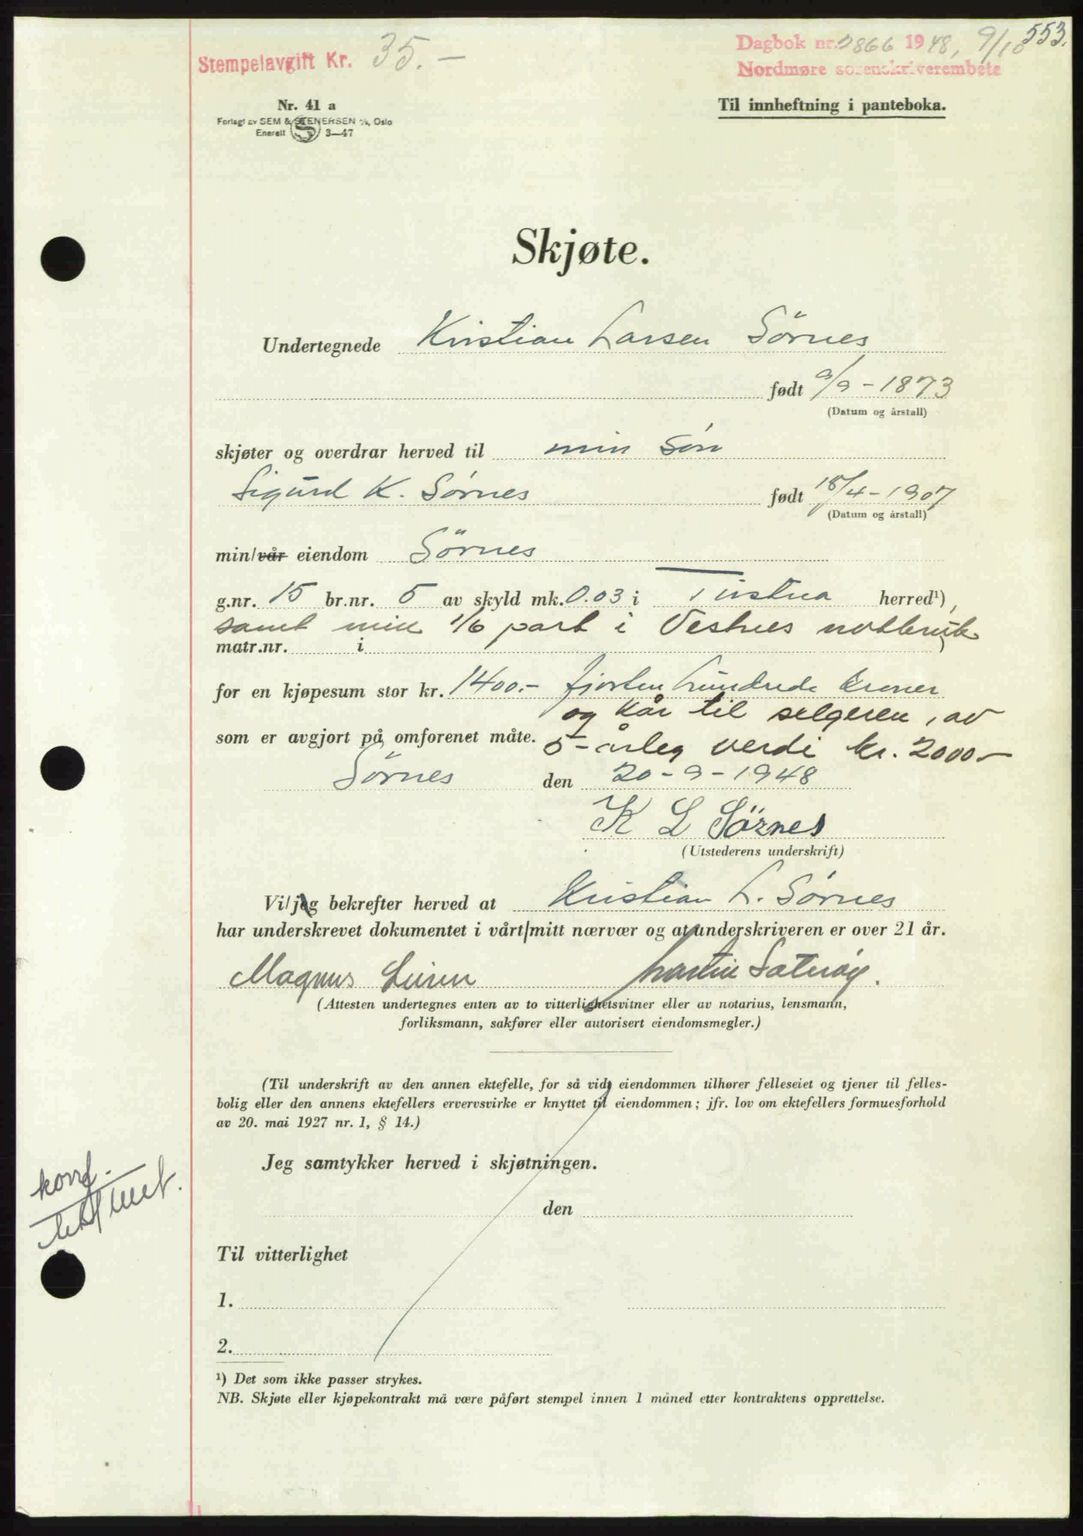 553.
Stempelavgift Kr. 35.-
Dagbok nr. 2866 1948, 9/10
Nordmøre sorenskriverembete
Nr. 41 a
Forlagt av SEM & STENERSEN A/S, Oslo
Enerett S 3—47
Til innheftning i panteboka.
Skjøte.
Undertegnede Kristian Larsen Sørnes
født 9/9 - 1873
(Datum og årstall)
skjøter og overdrar herved til min søn
Sigurd K. Sørnes født 18/4 - 1907
(Datum og årstall)
min/vår eiendom Sørnes
g.nr. 15 br.nr. 5 av skyld mk. 0.03 i Tustna herred¹),
samt min 1/6 part i Vestnes notbruk
matr.nr. i )
for en kjøpesum stor kr. 1400.- fjorten hundrede kroner
og kår til selgeren, av
som er avgjort på omforenet måte. 5-årleg verdi kr. 2000-
Sørnes den 20-9-1948
K L Sörnes
(Utstederens underskrift)
Vi/jeg bekrefter herved at Kristian L. Sørnes
har underskrevet dokumentet i vårt/mitt nærvær og at underskriveren er over 21 år.
Magnus Leiren Martin Sæterøy.
(Attesten undertegnes enten av to vitterlighetsvitner eller av notarius, lensmann,
forliksmann, sakfører eller autorisert eiendomsmegler.)
(Til underskrift av den annen ektefelle, for så vidt eiendommen tilhører felleseiet og tjener til felles-
bolig eller den annens ektefellers ervervsvirke er knyttet til eiendommen; jfr. lov om ektefellers formuesforhold
av 20. mai 1927 nr. 1, § 14.)
Jeg samtykker herved i skjøtningen.
konf.
den
Til vitterlighet
1.
2.
¹) Det som ikke passer strykes.
NB. Skjøte eller kjøpekontrakt må være påført stempel innen 1 måned etter kontraktens opprettelse.